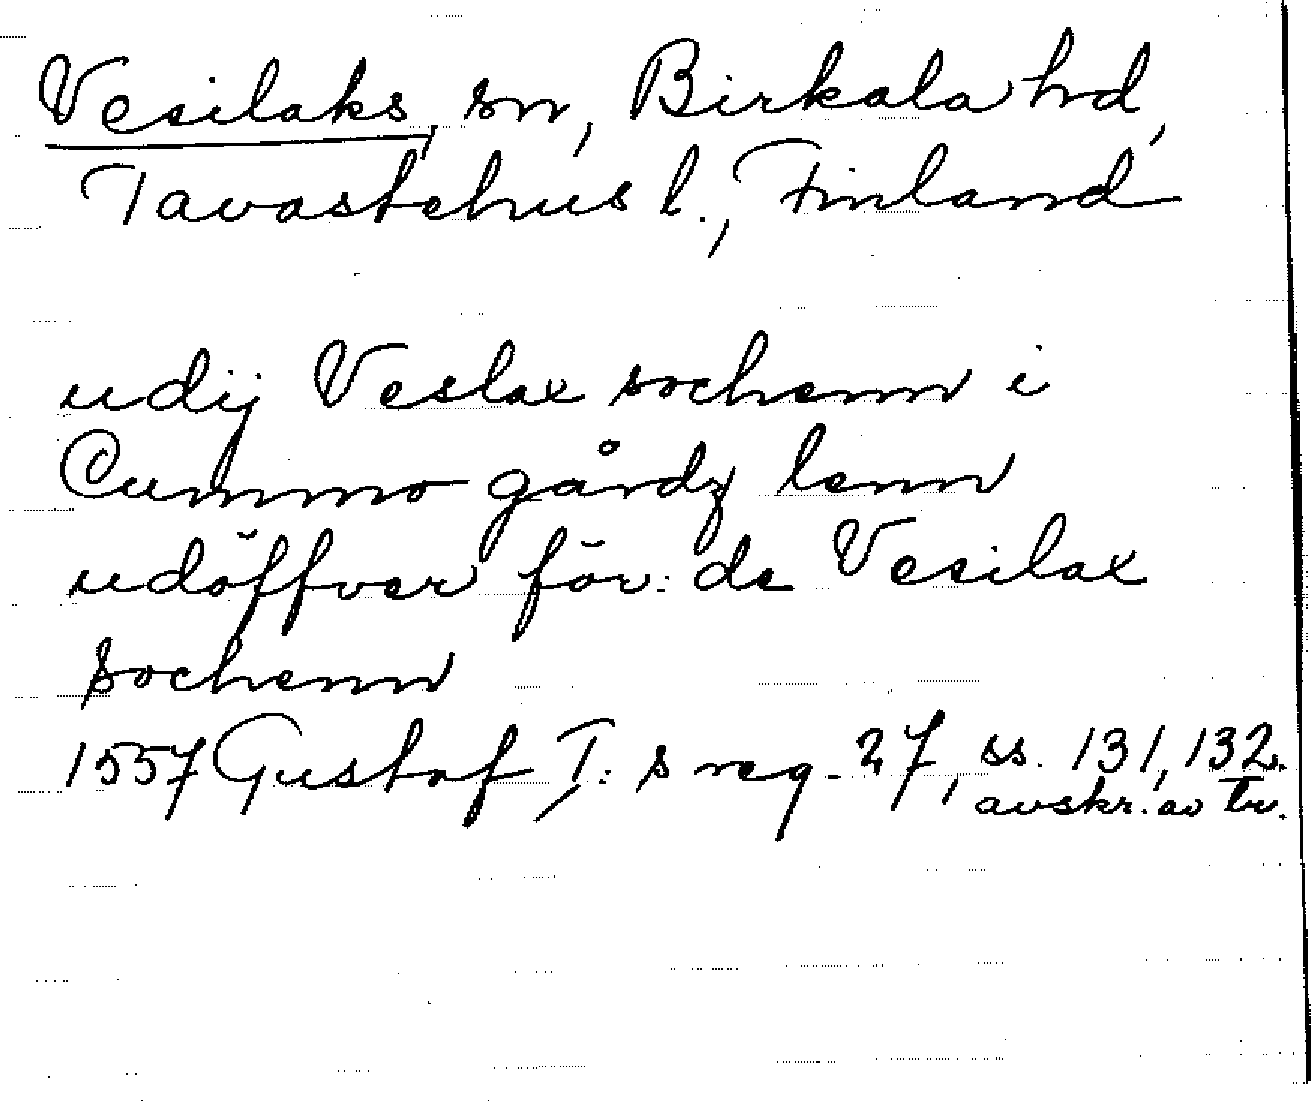 Vesilaks, sn, Birkala hd,
Tavastehus l., Finland
udij Veslax sochenn i
Cummo gårdz lenn
udöffver för: de Vesilax
sochenn
1557 Gustaf I:s reg. 27, ss. 131, 132.
avskr. av tr.